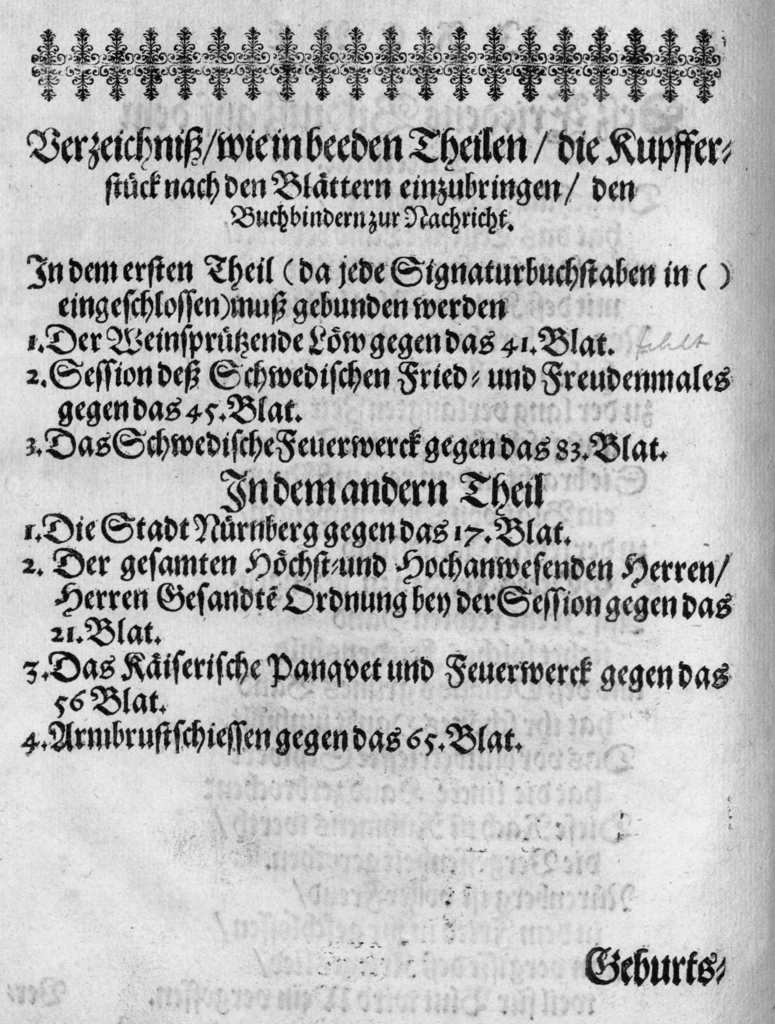 Verzeichniß/wie in beeden Theilen / die Kupffer-
stück nach den Blättern einzubringen/ den
Buchbindern zur Nachricht.
In dem ersten Theil (da jede Signaturbuchstaben in ( )
eingeschlossen) muß gebunden werden
1. Der Weinsprützende Löw gegen das 41. Blat. fehlt
2. Session deß Schwedischen Fried- und Freudenmales
gegen das 45. Blat.
3. Das Schwedische Feuerwerck gegen das 83. Blat.
In dem andern Theil
1. Die Stadt Nürnberg gegen das 17. Blat.
2. Der gesamten Höchst-und Hochanwesenden Herren/
Herren Gesandtē Ordnung bey der Session gegen das
21. Blat.
3. Das Käiserische Panqvet und Feuerwerck gegen das
56 Blat.
4. Armbrustschiessen gegen das 65. Blat.
Geburts-